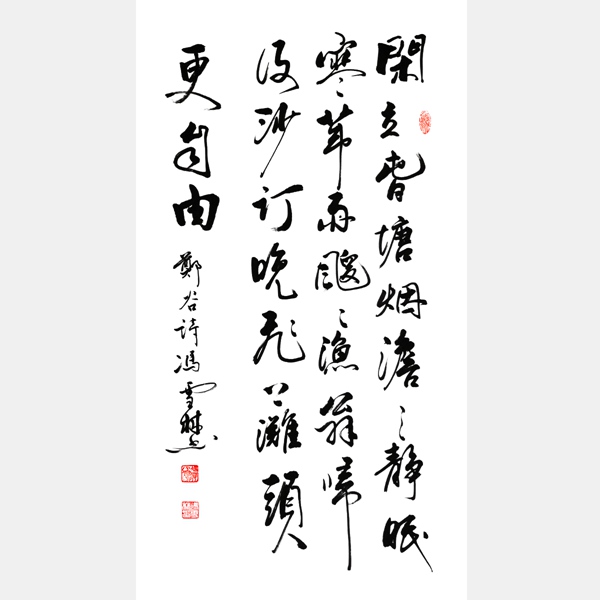 閑立春塘烟澹〻静眠
寒葦雨颼〻漁翁歸
後沙汀晚飛下灘頭
更自由
鄭谷詩馮雪林書